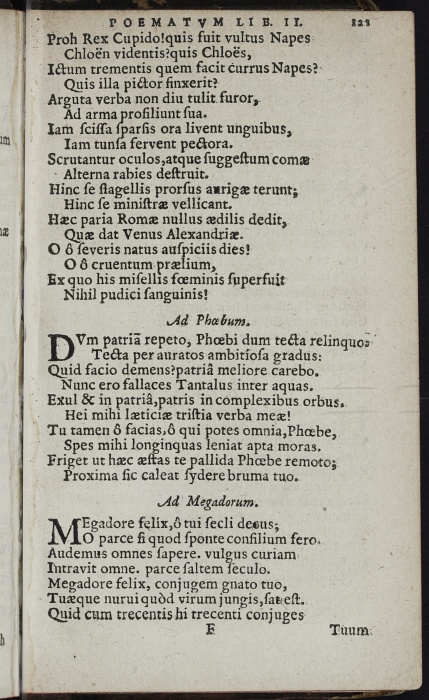 POEMATVM LIB. II.
Proh Rex Cupido! quis fuit vultus Napes
Chloën videntis? quis Chloës,
Ictum trementis quem facit currus Napes?
Quis illa pictor finxerit?
Arguta verba non diu tulit furor,
Ad arma prosiliunt sua.
Iam scissa sparsis ora livent unguibus,
Iam tunsa fervent pectora.
Scrutantur oculos, atque suggestum comæ
Alterna rabies destruit.
Hinc se flagellis prorsus aurigæ terunt;
Hinc se ministræ vellicant.
Hæc paria Romæ nullus ædilis dedit,
Quæ dat Venus Alexandriæ.
O ô severis natus auspiciis dies!
O ô cruentum prælium,
Ex quo his misellis fœminis superfuit
Nihil pudici sanguinis!
Ad Phœbum.
DVm patriã repeto, Phœbi dum tecta relinquo:
Tecta per auratos ambitiosa gradus:
Quid facio demens? patriâ meliore carebo.
Nunc ero fallaces Tantalus inter aquas.
Exul & in patriâ, patris in complexibus orbus.
Hei mihi læticiæ tristia verba meæ!
Tu tamen ô facias, ô qui potes omnia, Phœbe,
Spes mihi longinquas leniat apta moras.
Friget ut hæc æstas te pallida Phœbe remoto;
Proxima sic caleat sydere bruma tuo.
Ad Megadorum.
MEgadore felix, ô tui secli decus;
O parce si quod sponte consilium fero.
Audemus omnes sapere. vulgus curiam
Intravit omne. parce saltem seculo.
Megadore felix, conjugem gnato tuo,
Tuæque nurui quòd virum jungis, sat est.
Quid cum trecentis hi trecenti conjuges
F
Tuum